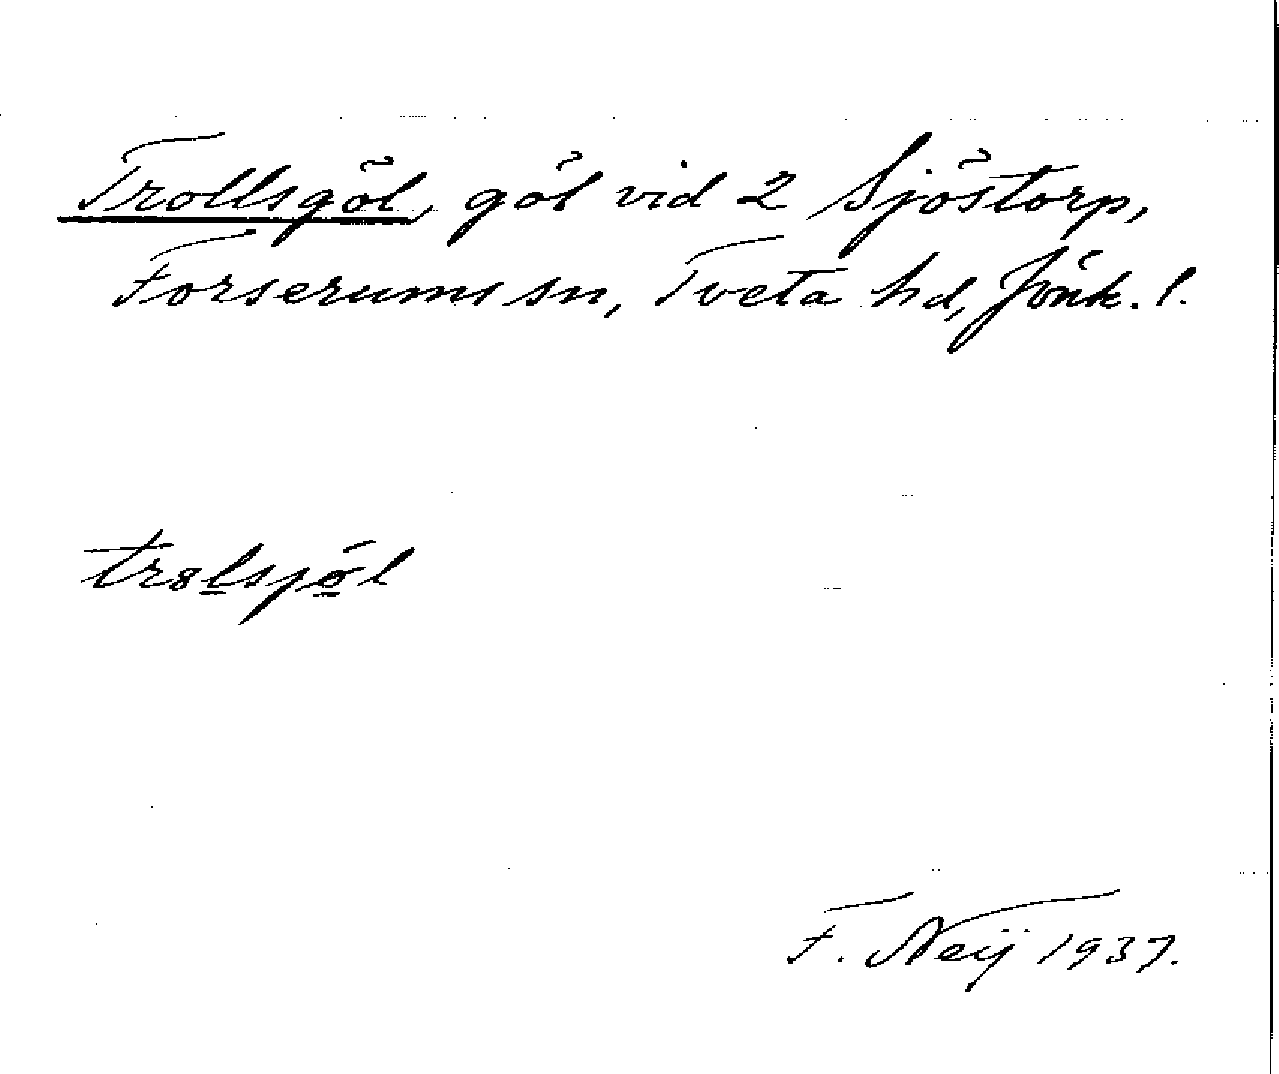 Trollsgöl, göl vid 2 Sjöstorp,
Forserums sn, Tveta hd, Jönk. l.
trålsjöl
F. Neij 1937.